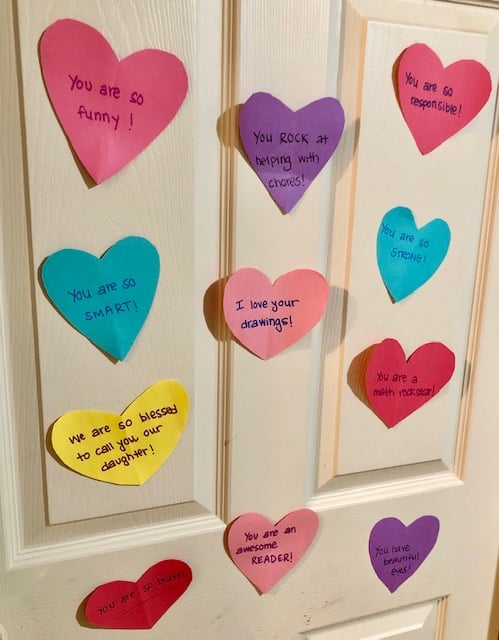 You are so
funny!
You ROCK at
helping with
chores!
You are so
responsible!
You are so
SMART!
I love your
drawings!
You are so
STRONG!
We are so blessed
to call you our
daughter!
You are a
math rockstar!
You are so brave!
You are an
awesome
READER!
You have
beautiful
eyes!